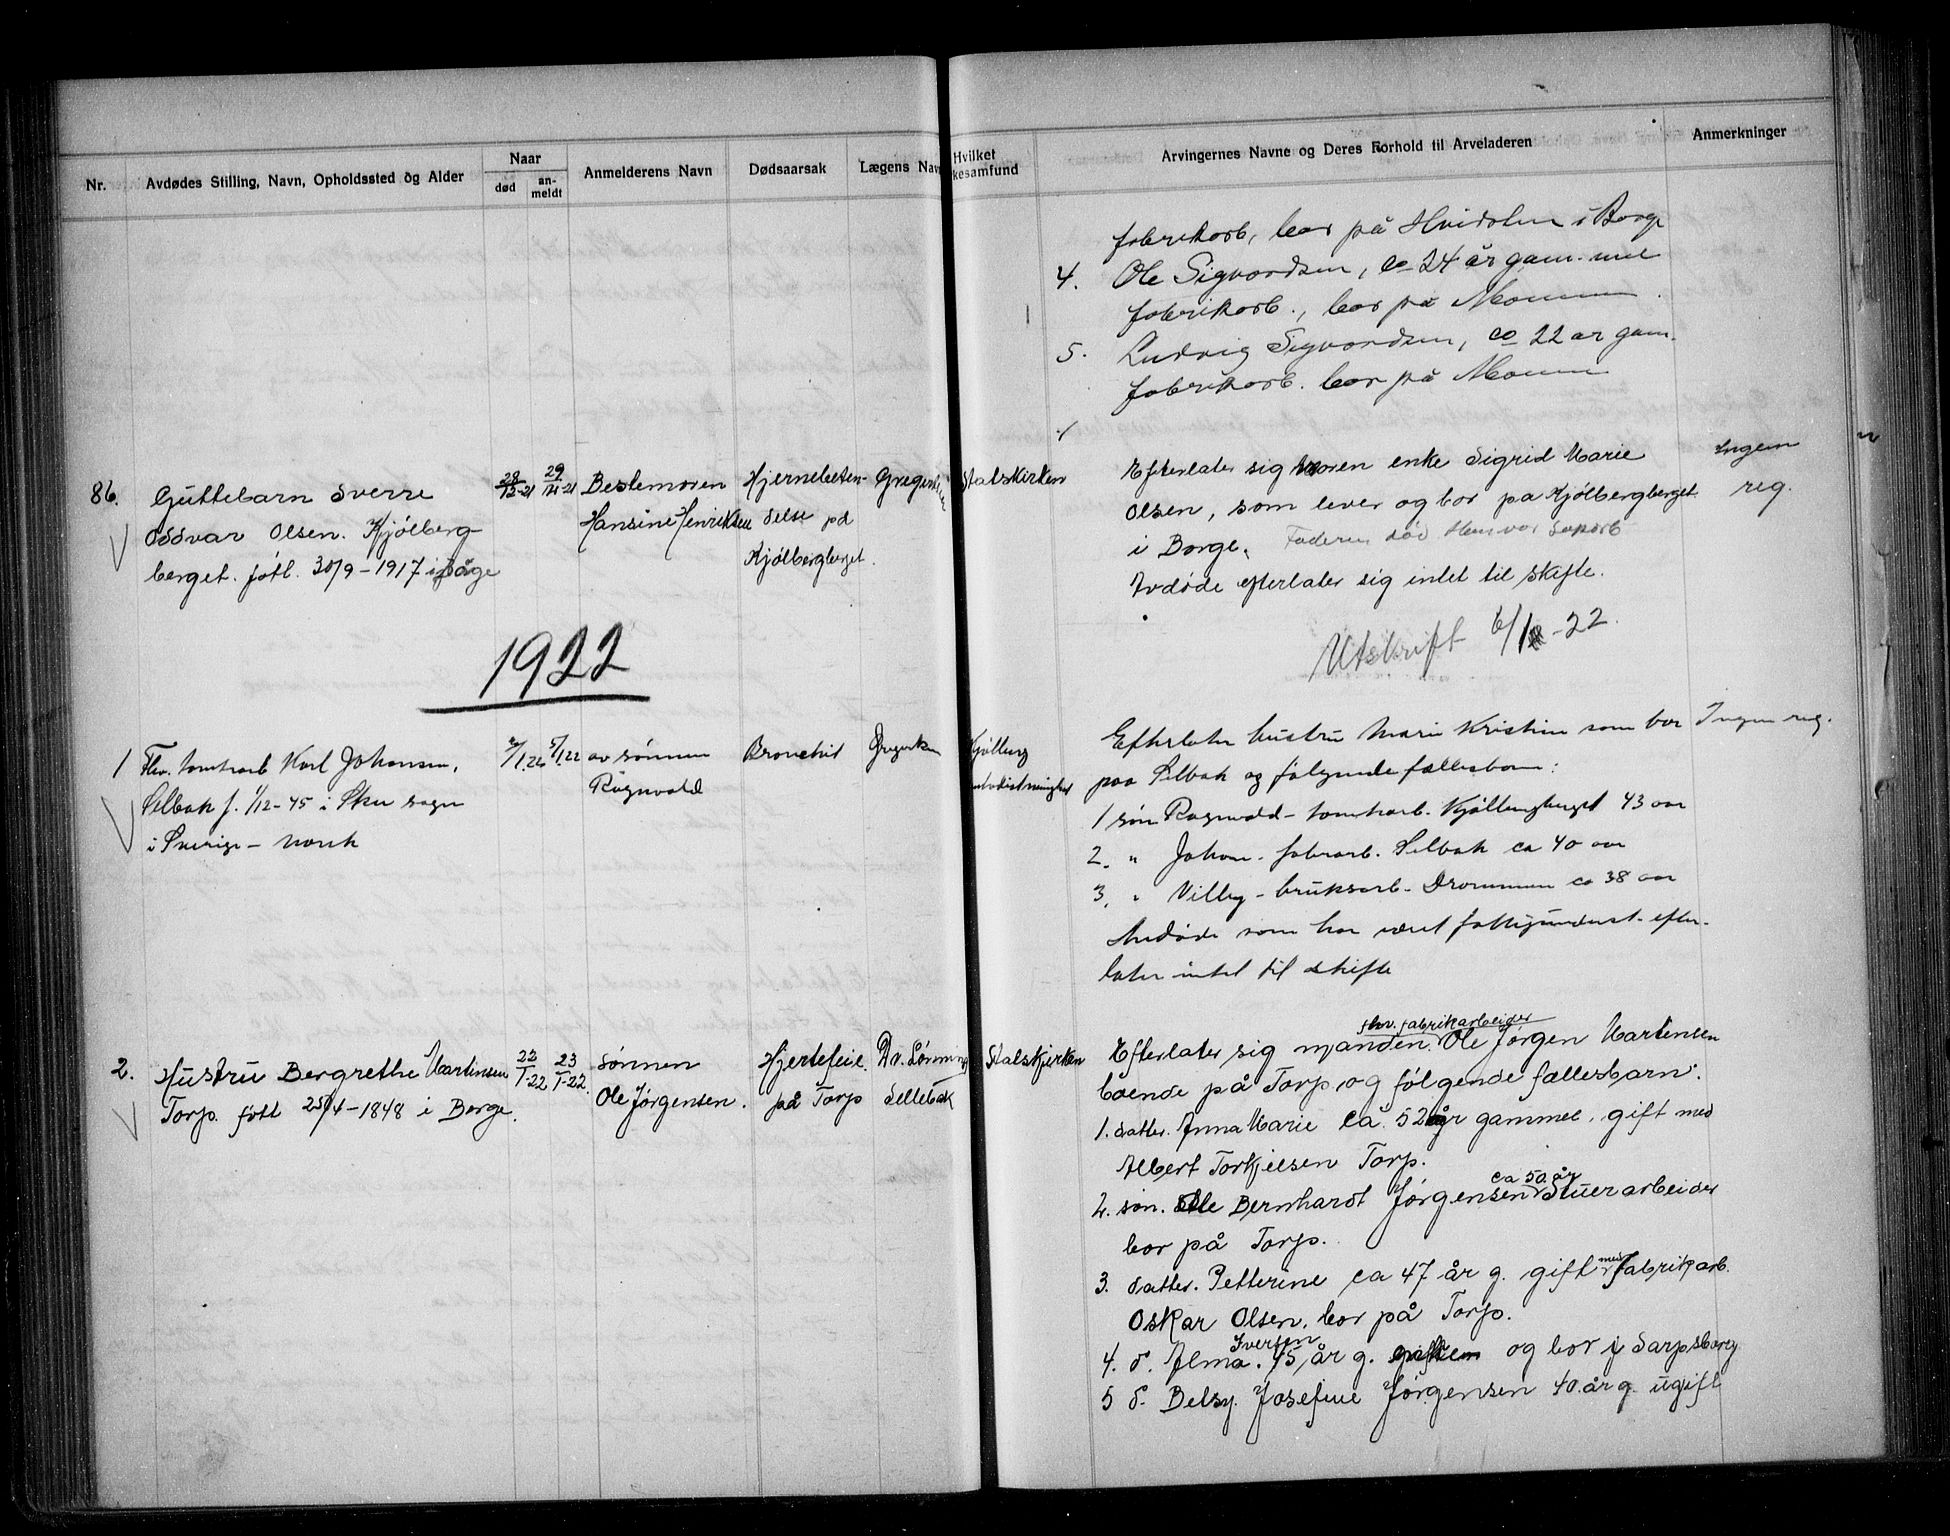 Nr.
Avdødes Stilling, Navn, Opholdssted og Alder
Naar
død
an-
meldt
Anmelderens Navn
Dødsaarsak
Lægens Nav
Hvilket
kesamfund
Arvingernes Navne og Deres Forhold til Arveladeren
Anmerkninger
fabrikarb, bor på Hvidsten i Borge
4. Ole Sigvardsen, ca 24 år gam.
fabrikarb., bor på Moum
5. Ludvig Sigvardsen, ca 22 ar gam.
fabrikarb. bor på Moum
86. Guttebarn Sverre
Oddvar Olsen. Kjølberg-
berget. føtt. 30/9-1917 i
28/12-21
29/12-21
Bestemoren
Hansine Henriksen
Hjernebeten-
delse på
Kjølbergberget.
Gregersen
Statskirken
Efterlater sig moren enke Sigrid Marie
Olsen, som lever og bor pa Kjølbergberget
i Borge. Faderen død Han var
Avdøde efterlater sig intet til skifte.
Ingen
reg.
Utskrift 6/1-22.
1922
1 Flv. tomtearb Karl Johansen,
Selbak f. 1/12-45 i sogn
i Sverige - norsk
5/1.22
av sønnen
Ragnvald
Bronchit
Gregersen
Kjølberg
Efterlater hustru Marie Kristine som bor
paa Selbak og følgende fællesbarn:
1 søn Ragnvald - tomtearb. Kjølbergberget 43 aar
2. " Johan - fabrarb. Selbak ca 40 aar
3. " Villy - bruksarb. Drammen ca 38 aar
Avdøde som har været fattigunderst. efter-
later intet til skifte
Ingen reg.
2. Hustru Bergrethe Martinsen
Torp. føtt 25/4-1848 i Borge.
22/1-22
23/1-22.
Sønnen
Ole Jørgensen.
Hjertefeil.
på Torp
Dr. Lønning
Sellebak
Statskjirken
flv. fabrikarbeider
Efterlater sig manden. Ole Jørgen Martinsen
boende på Torp, og følgende fællesbarn.
1. datter. Anna Marie ca. 52 år gammel, gift med
Albert Torkjelsen Torp.
ca 50 år
2. søn. Ole Bernhardt Jørgensen Stuerarbeider
bor på Torp.
3. datter. Petterine ca 47 år g. gift med fabrikarb.
Oskar Olsen, bor på Torp.
Iversen
4. d. Alma. 45 år g. og bor i Sarpsborg
5 d. Betsy. Josefine Jørgensen 40. år g. ugift